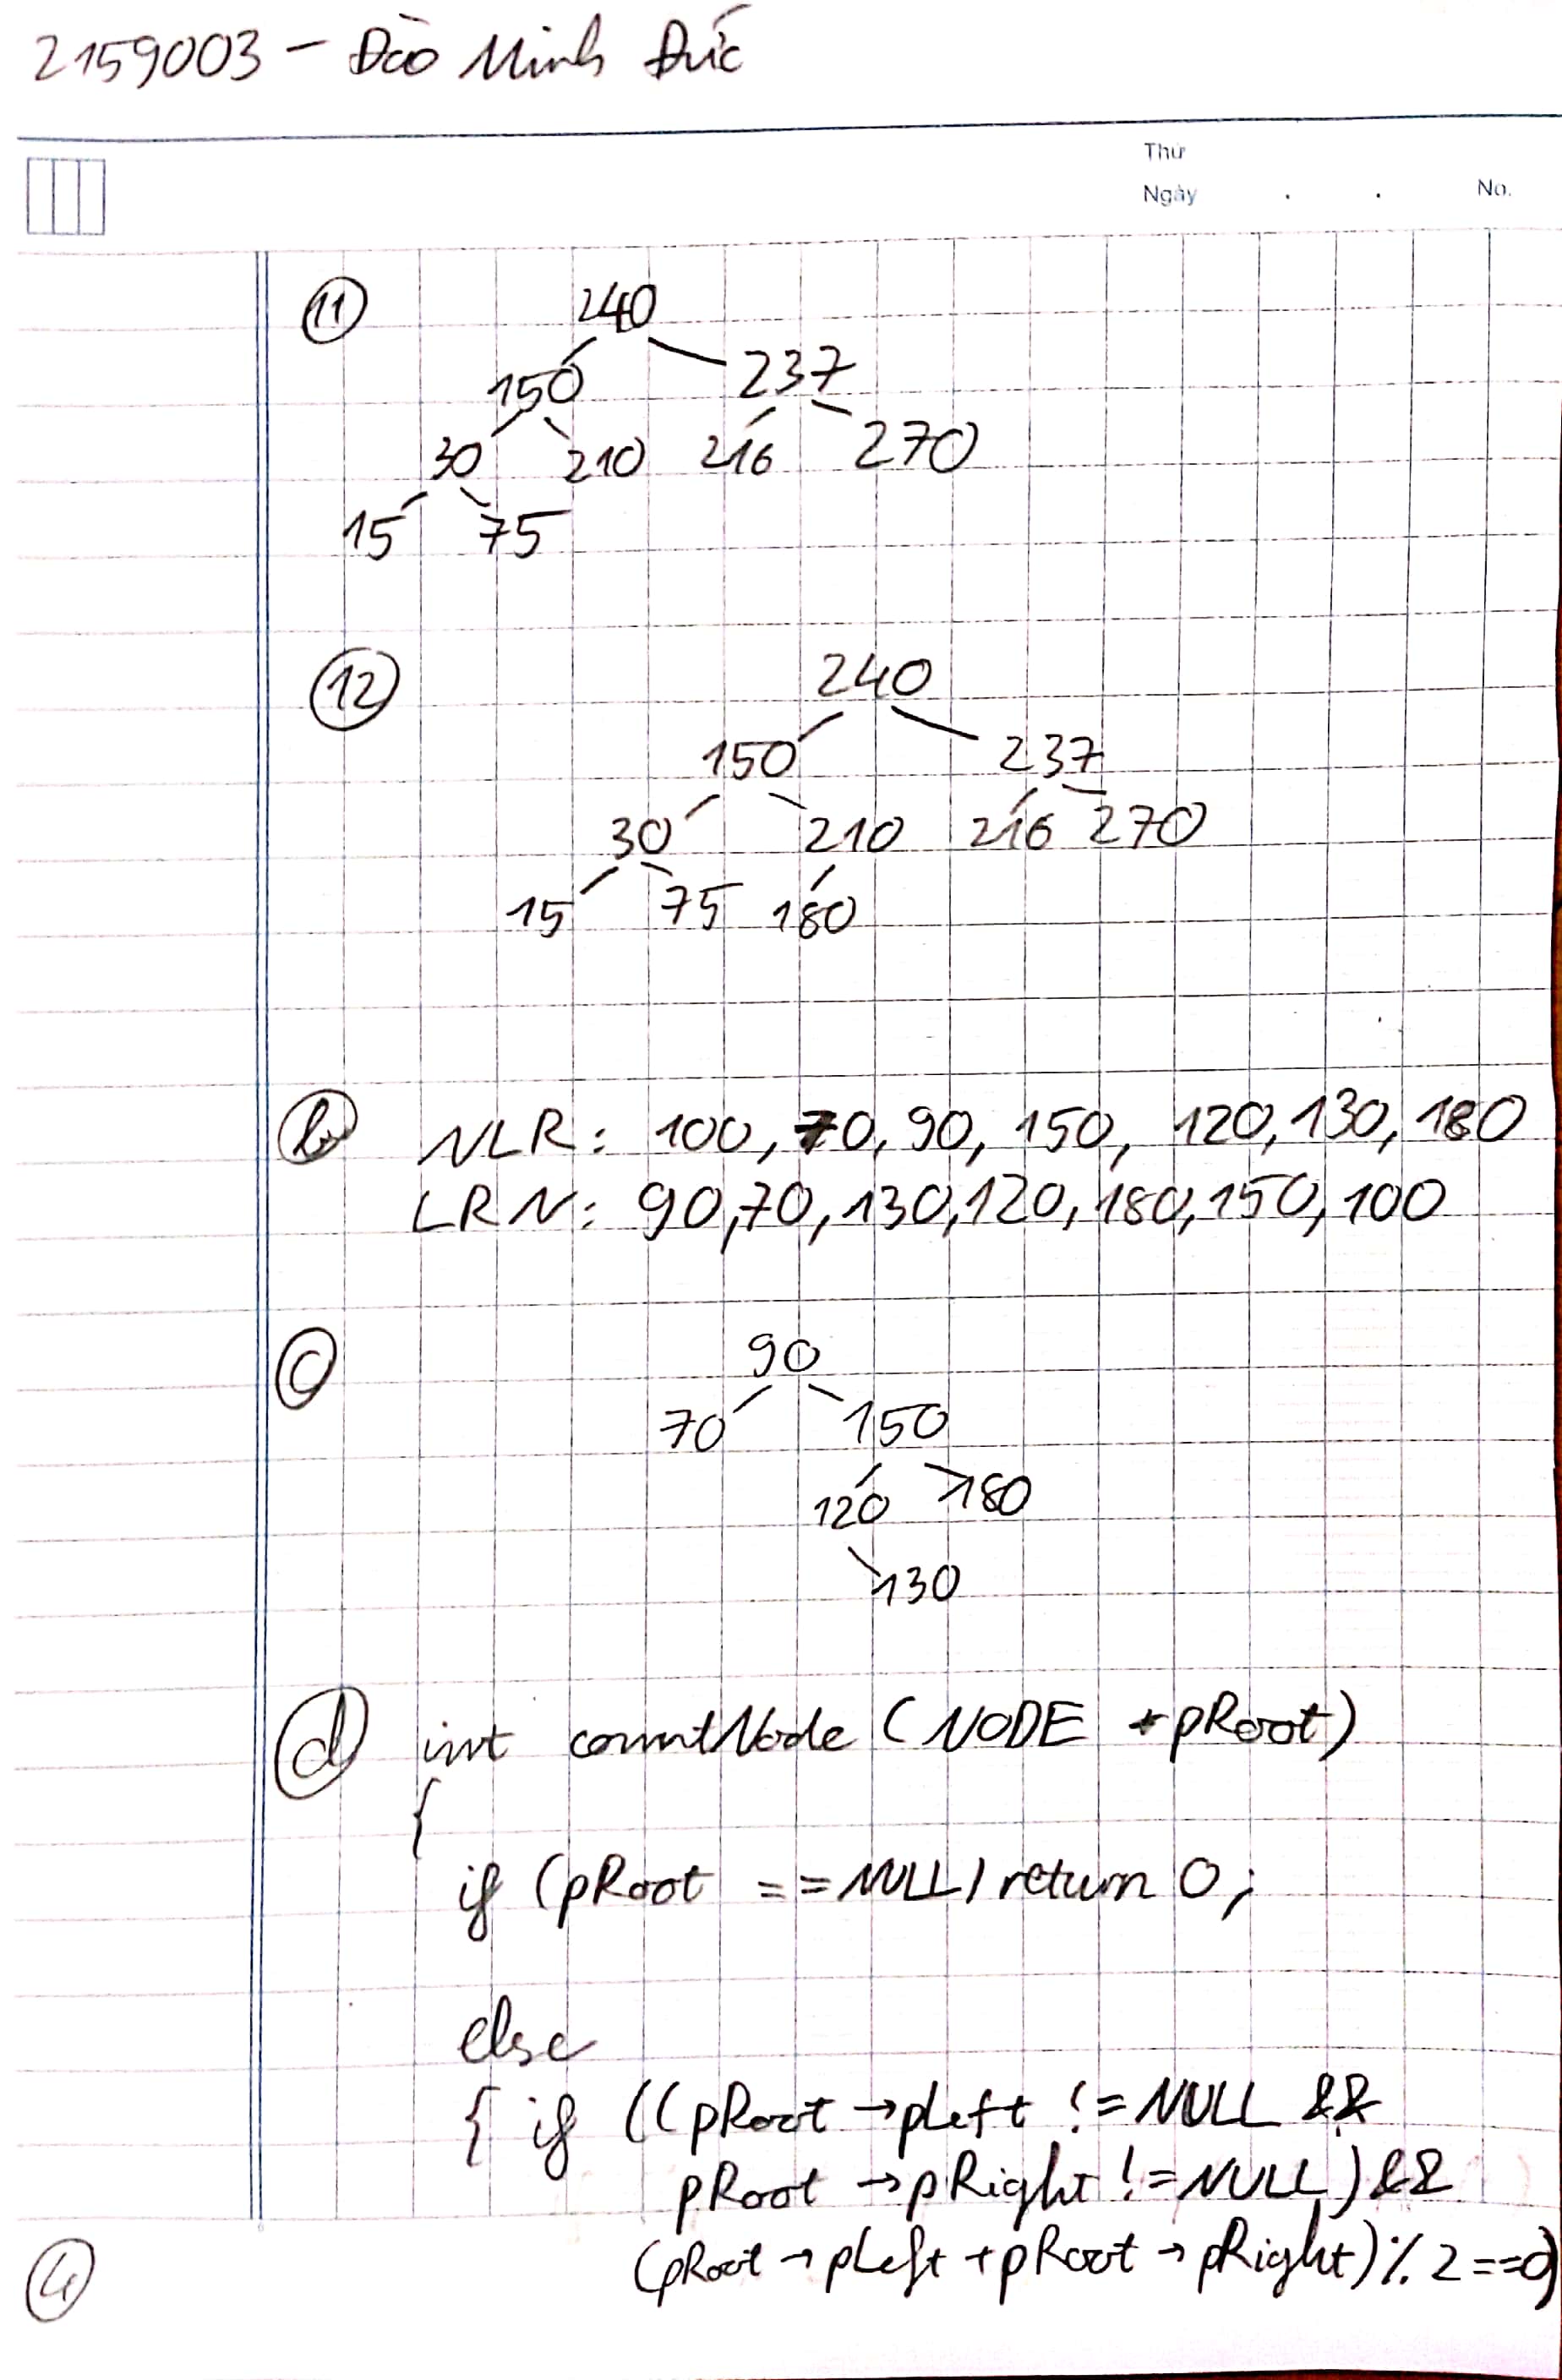 2159003 - Đào Minh Đức
Thứ
Ngày . . No.
11
240
150 237
30 210 216 270
15 75
12
240
150 237
30 210 216 270
15 75 180
b NLR: 100, 70, 90, 150, 120, 130, 180
LRN: 90, 70, 130, 120, 180, 150, 100
c
90
70 150
120 180
130
d int countNode (NODE *pRoot)
{
if (pRoot == NULL) return 0;
else
{ if ((pRoot →pLeft != NULL &&
pRoot →pRight != NULL) &&
(pRoot → pLeft + pRoot → pRight) % 2 ==0)
4